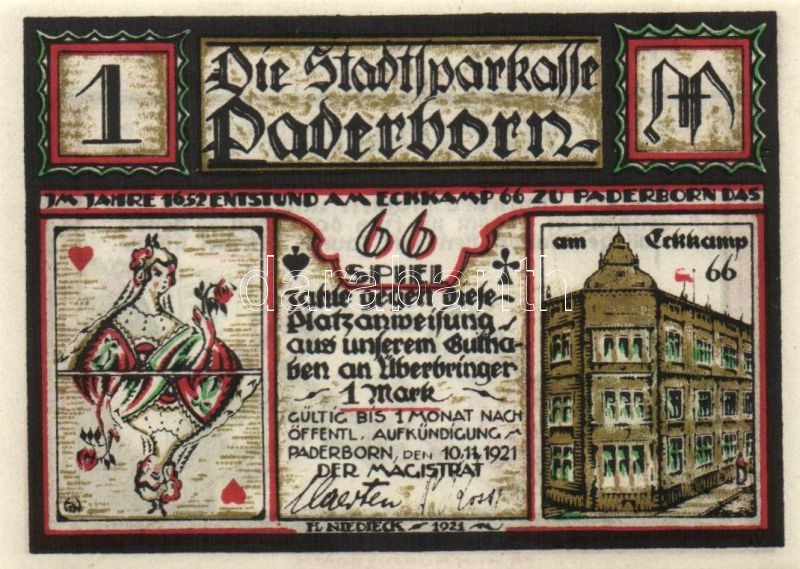 1
Die Stadtsparkasse
Paderborn
M
IM JAHRE 1652 ENTSTUND AM ECKKAMP 66 ZU PADERBORN DAS
66
SPIEL
Zahle gegen diese
Platzanweisung
aus unserem Gutha-
ben an Überbringer
1 Mark
GÜLTIG BIS 1 MONAT NACH
ÖFFENTL. AUFKÜNDIGUNG
PADERBORN, DEN 10.11.1921
DER MAGISTRAT
am Eckkamp
66
FL NIEDIECK - 1921
darabanth